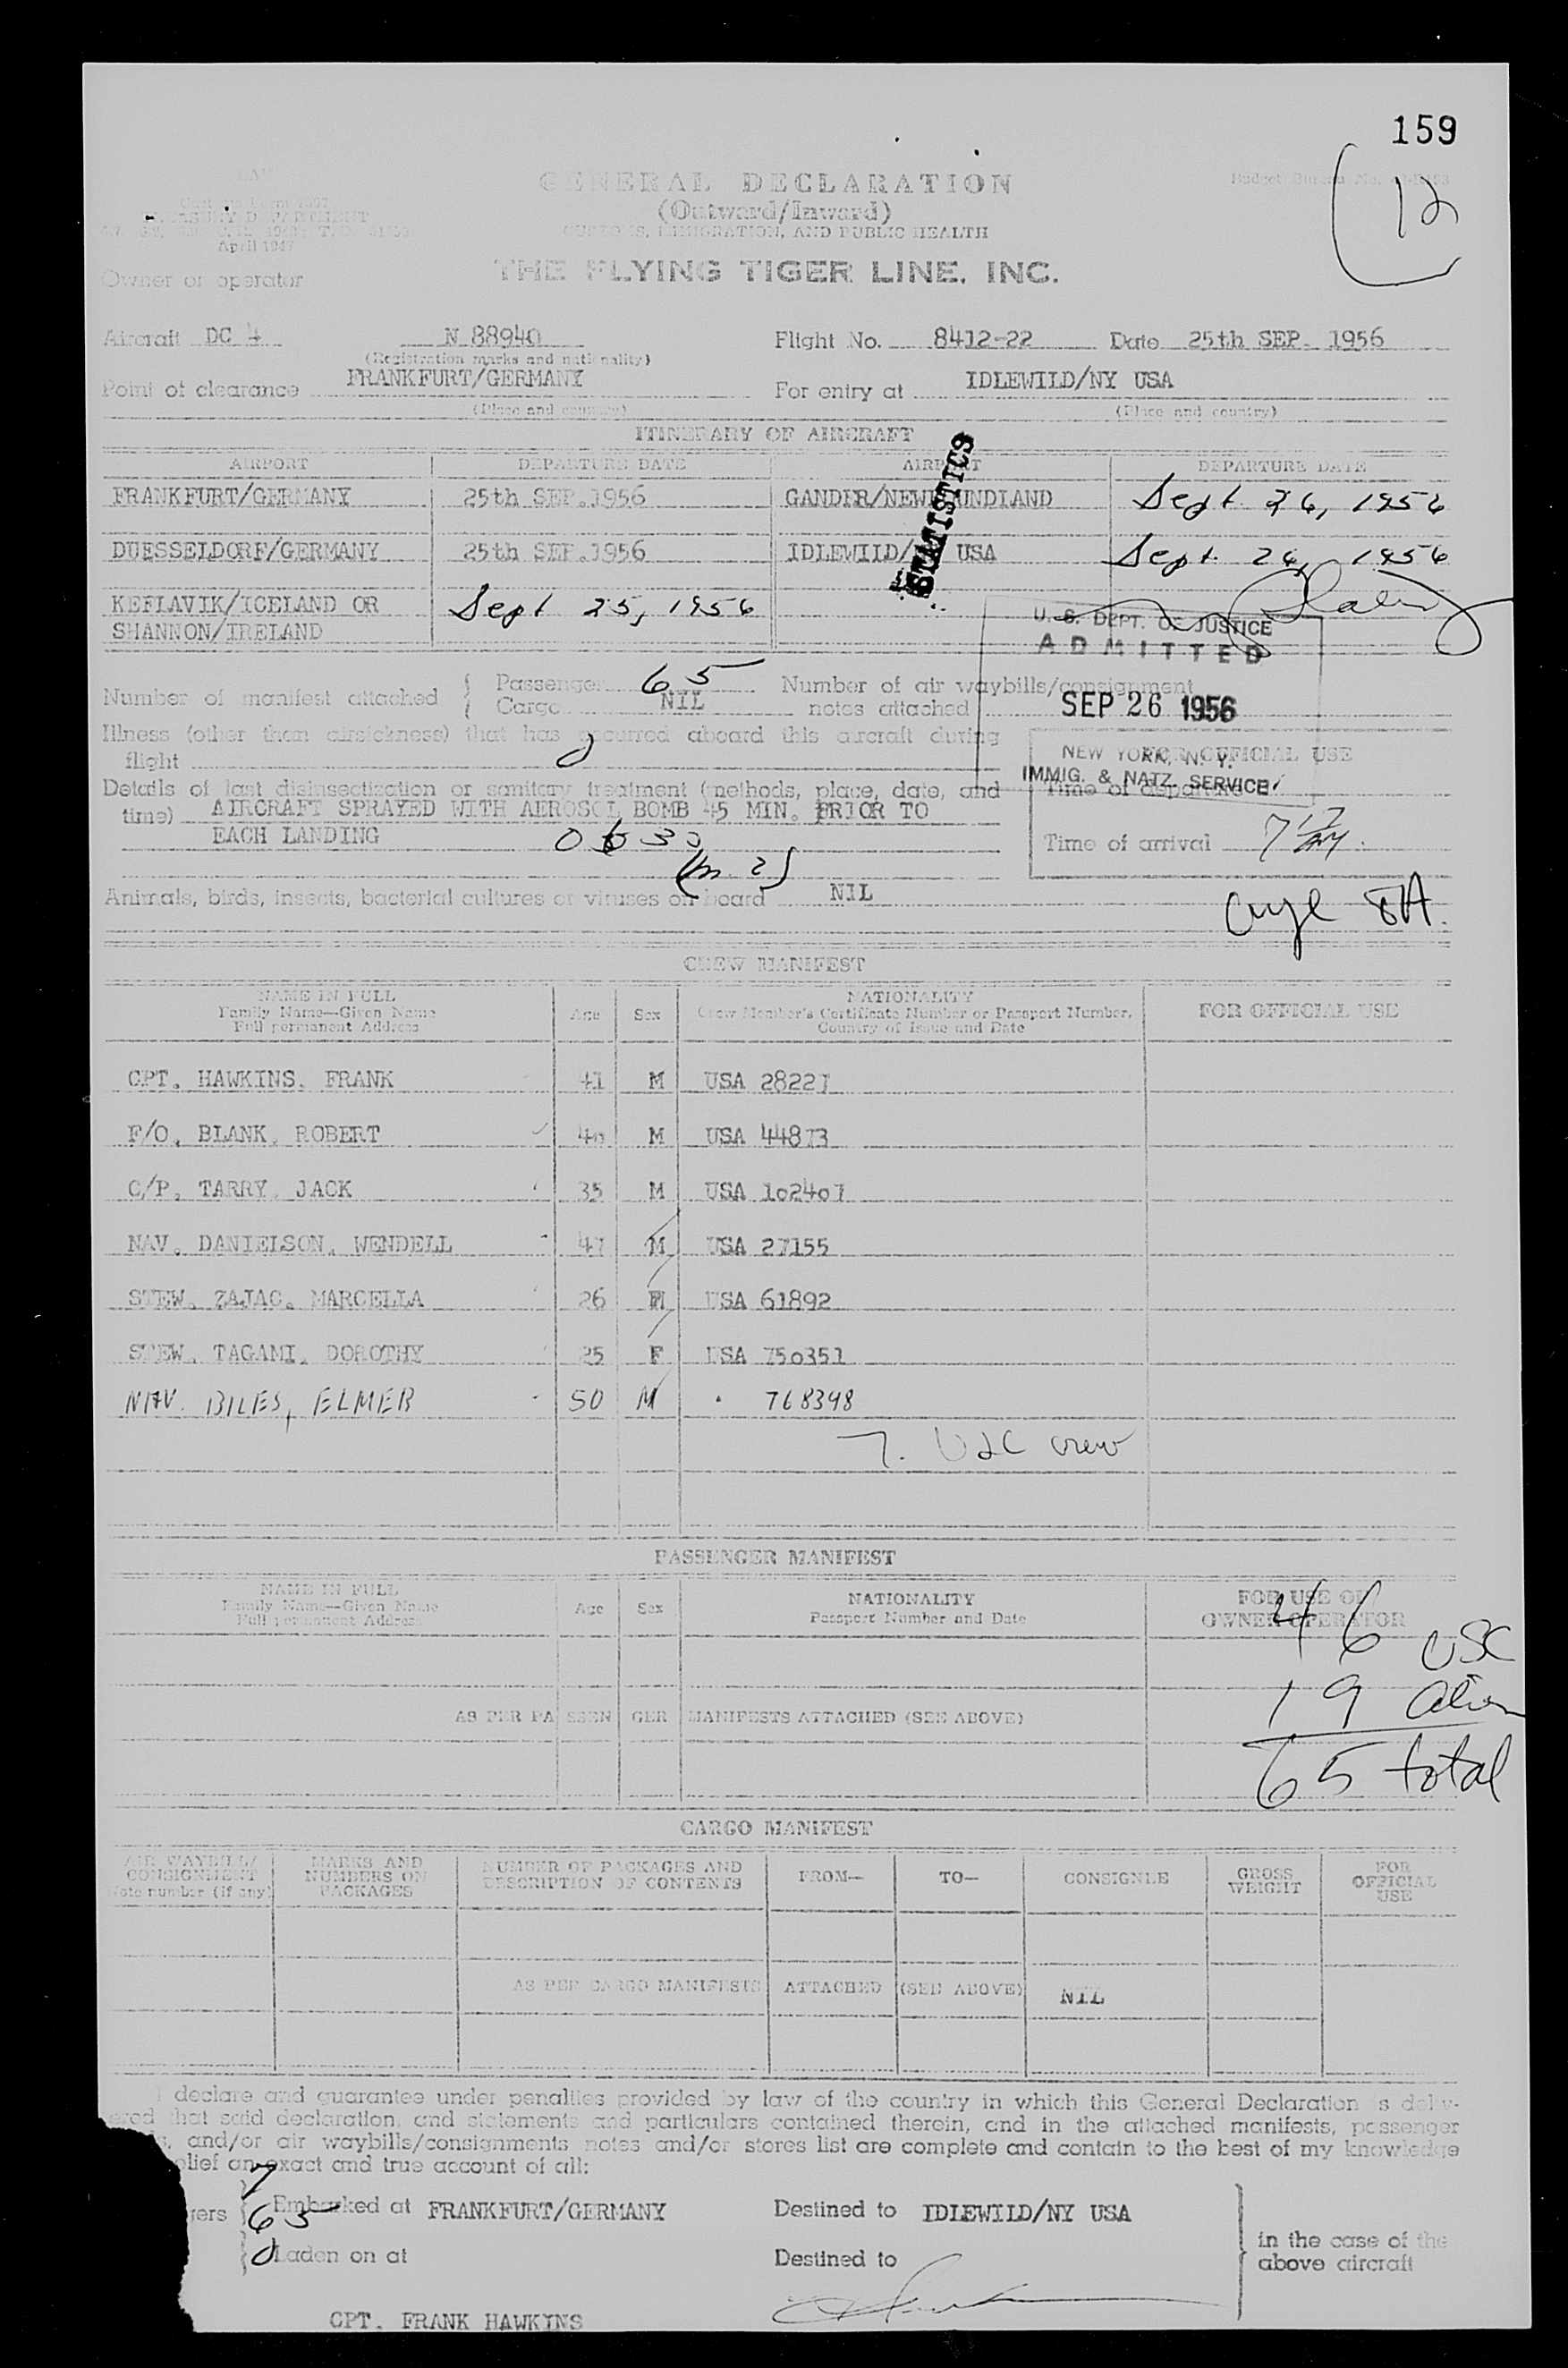 159
12
GENERAL DECLARATION
(Outward/Inward)
CUSTOMS, IMMIGRATION, AND PUBLIC HEALTH
April 1947
THE FLYING TIGER LINE, INC.
Owner or operator
Aircraft DC 4 N 88940 Flight No. 8412-22 Date 25th SEP. 1956
(Registration marks and nationality)
Point of clearance FRANKFURT/GERMANY For entry at IDLEWILD/NY USA
(Place and country) (Place and country)
ITINERARY OF AIRCRAFT
AIRPORT DEPARTURE DATE AIRPORT DEPARTURE DATE
FRANKFURT/GERMANY 25th SEP.1956 GANDER/NEWFOUNDLAND Sept 26, 1956
DUESSELDORF/GERMANY 25th SEP.1956 IDLEWILD/NY USA Sept. 26, 1956
STATISTICS
KEFLAVIK/ICELAND OR Sept 25, 1956
SHANNON/IRELAND
U. S. DEPT. OF JUSTICE
ADMITTED
SEP 26 1956
NEW YORK, N. Y.
IMMIG. & NATZ. SERVICE
Number of manifest attached Passenger 65 Number of air waybills/consignment
Cargo NIL notes attached
Illness (other than airsickness) that has occurred aboard this aircraft during
flight
FOR OFFICIAL USE
Details of last disinsectization or sanitary treatment (methods, place, date, and
time) AIRCRAFT SPRAYED WITH AEROSOL BOMB 45 MIN. PRIOR TO
EACH LANDING 0630
Time of departure
Time of arrival 7 17 AM
Animals, birds, insects, bacterial cultures or viruses on board NIL
CREW MANIFEST
NAME IN FULL Age Sex NATIONALITY FOR OFFICIAL USE
Family Name—Given Name Crew Member's Certificate Number or Passport Number,
Full permanent Address Country of Issue and Date
CPT. HAWKINS, FRANK 41 M USA 28227
F/O. BLANK, ROBERT 40 M USA 44873
C/P. TARRY, JACK 35 M USA 102407
NAV. DANIELSON, WENDELL 47 M USA 27155
STEW. ZAJAC, MARCELLA 26 F USA 61892
STEW. TAGAMI, DOROTHY 25 F USA 750351
NAV. BILES, ELMER 50 M " 768398
7. USC crew
PASSENGER MANIFEST
NAME IN FULL Age Sex NATIONALITY FOR USE OF
Family Name—Given Name Passport Number and Date OWNER OPERATOR
Full permanent Address
46 USC
19 alien
AS PER PASSENGER MANIFESTS ATTACHED (SEE ABOVE)
65 total
CARGO MANIFEST
AIR WAYBILL/ MARKS AND NUMBER OF PACKAGES AND FROM— TO— CONSIGNEE GROSS FOR
CONSIGNMENT NUMBERS ON DESCRIPTION OF CONTENTS WEIGHT OFFICIAL
Note number (if any) PACKAGES USE
AS PER CARGO MANIFESTS ATTACHED (SEE ABOVE) NIL
I declare and guarantee under penalties provided by law of the country in which this General Declaration is deliv-
ered that said declaration, and statements and particulars contained therein, and in the attached manifests, passenger
and/or air waybills/consignments notes and/or stores list are complete and contain to the best of my knowledge
belief an exact and true account of all:
7
65 Embarked at FRANKFURT/GERMANY Destined to IDLEWILD/NY USA
0 Laden on at Destined to
in the case of the
above aircraft
CPT. FRANK HAWKINS